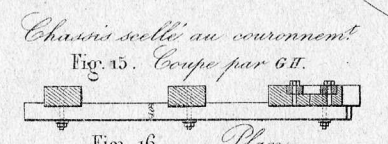 Chassis scellé au couronnemt.
Fig. 15. Coupe par GH.
Fig. 16. Plan